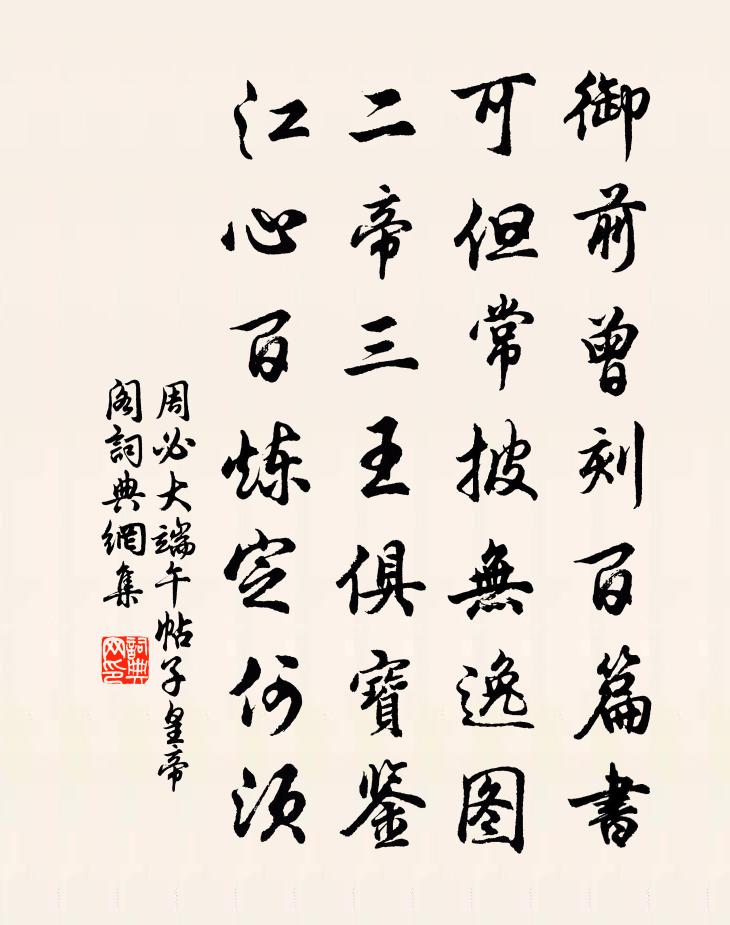 御前曾刻百篇書
可但常披無逸图
二帝三王俱寶鉴
江心百炼定何须
周必大端午帖子皇帝
阁詞典網集
詞典网印